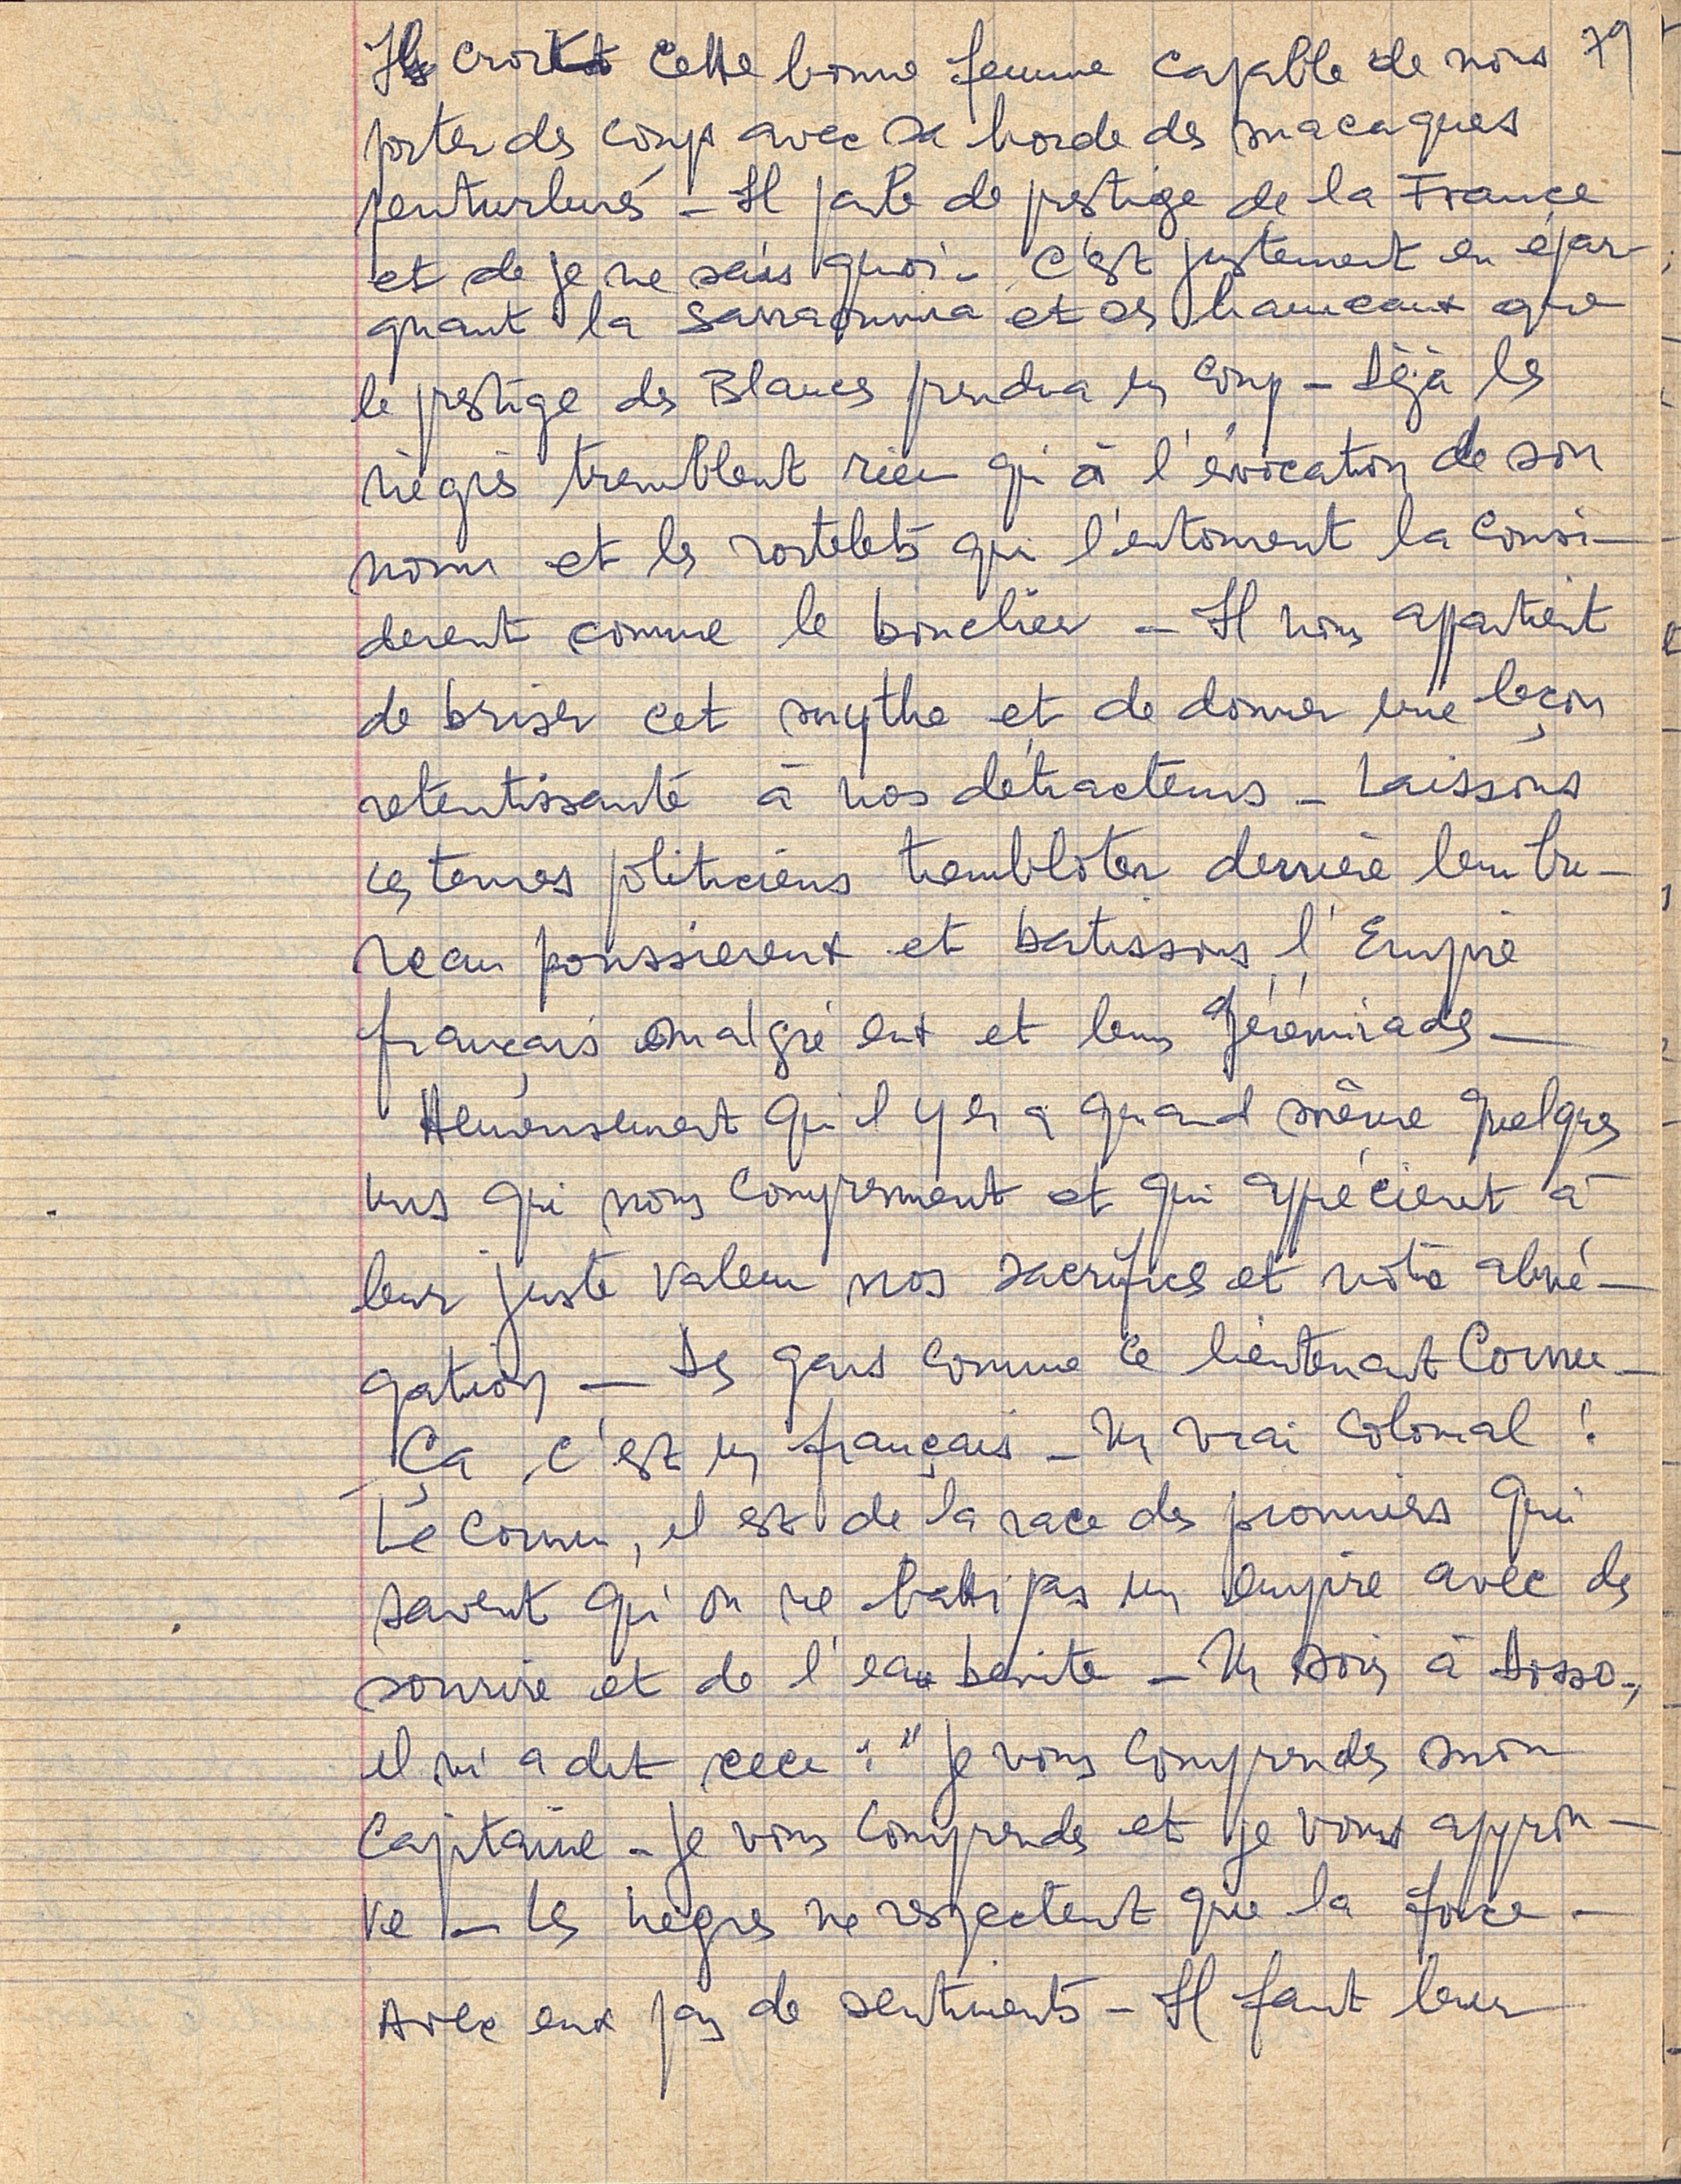 Il croit cette bonne femme capable de nous 79
porter des coups avec sa horde de macaques
peinturlurés - Il parle de prestige de la France
et de je ne sais quoi - C'est justement en épar-
gnant la Sarraounia et ses hameaux que
le prestige des Blancs prendra un coup - Déjà les
nègres tremblent rien qu'à l'évocation de son
nom et les roitelets qui l'entourent la consi-
derent comme le bouclier - Il nous appartient
de briser cet mythe et de donner une leçon
retentissante à nos détracteurs - Laissons
ces ternes politiciens trembloter derrière leur bu-
reau poussiereux et batissons l'Empire
français malgré eux et leurs Jérémiades -
Heureusement qu'il y en a quand même quelques
uns qui nous comprennent et qui appécient à
leur juste valeur nos sacrifices et notre abné-
gation - Des gars comme ce lieutenant Cornu -
Ça, c'est un français - Un vrai colonial !
Le Cornu, il est de la race des pionniers qui
savent qu'on ne bati pas un empire avec des
sourire et de l'eau benite - Un soir à Dosso,
il m'a dit ceci : " Je vous comprends mon
Capitaine - Je vous comprends et je vous approu-
ve - Les nègres ne respectent que la force -
Avec eux pas de sentiments - Il faut leur